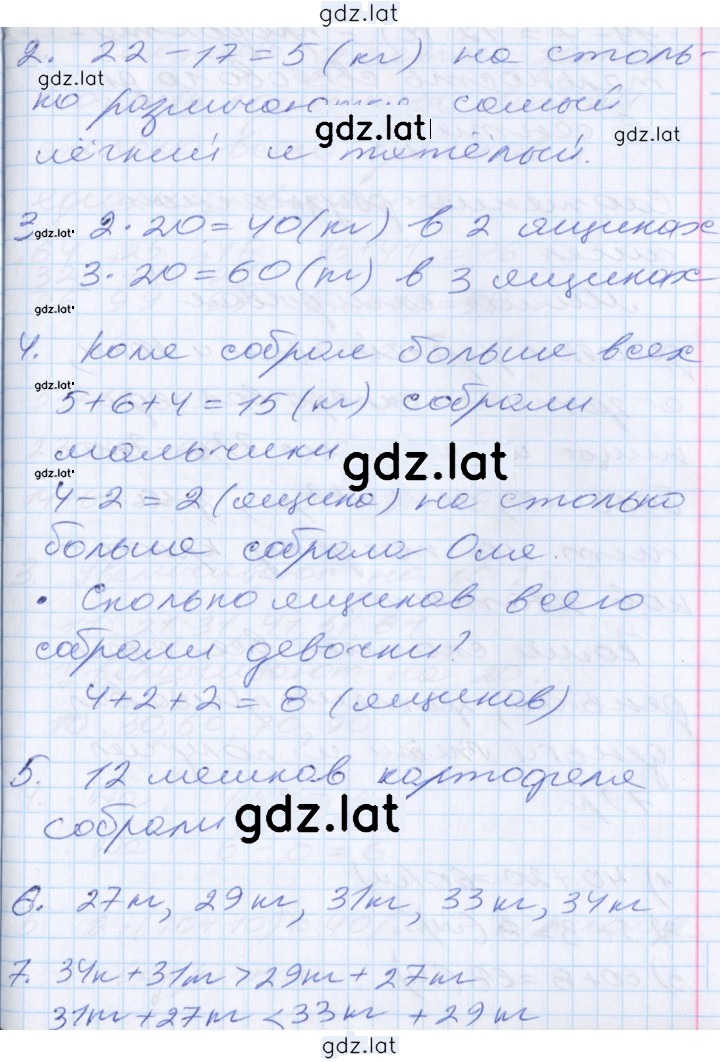 gdz.lat
2. 22 - 17 = 5 (кг) на столь-
gdz.lat
ко различаются самый
gdz.lat
gdz.lat
лёгкий и тяжёлый.
3. 2 · 20 = 40 (кг) в 2 ящиках
gdz.lat
3 · 20 = 60 (кг) в 3 ящиках
gdz.lat
4. Коля собрал больше всех
gdz.lat
5 + 6 + 4 = 15 (кг) собрали
мальчики
gdz.lat
gdz.lat
4 - 2 = 2 (ящика) на столько
больше собрала Оля.
• Сколько ящиков всего
собрали девочки?
4 + 2 + 2 = 8 (ящиков)
5. 12 мешков картофеля
собрали
gdz.lat
6. 27 кг, 29 кг, 31 кг, 33 кг, 34 кг
7. 34 к + 31 кг > 29 кг + 27 кг
31 кг + 27 кг < 33 кг + 29 кг
gdz.lat